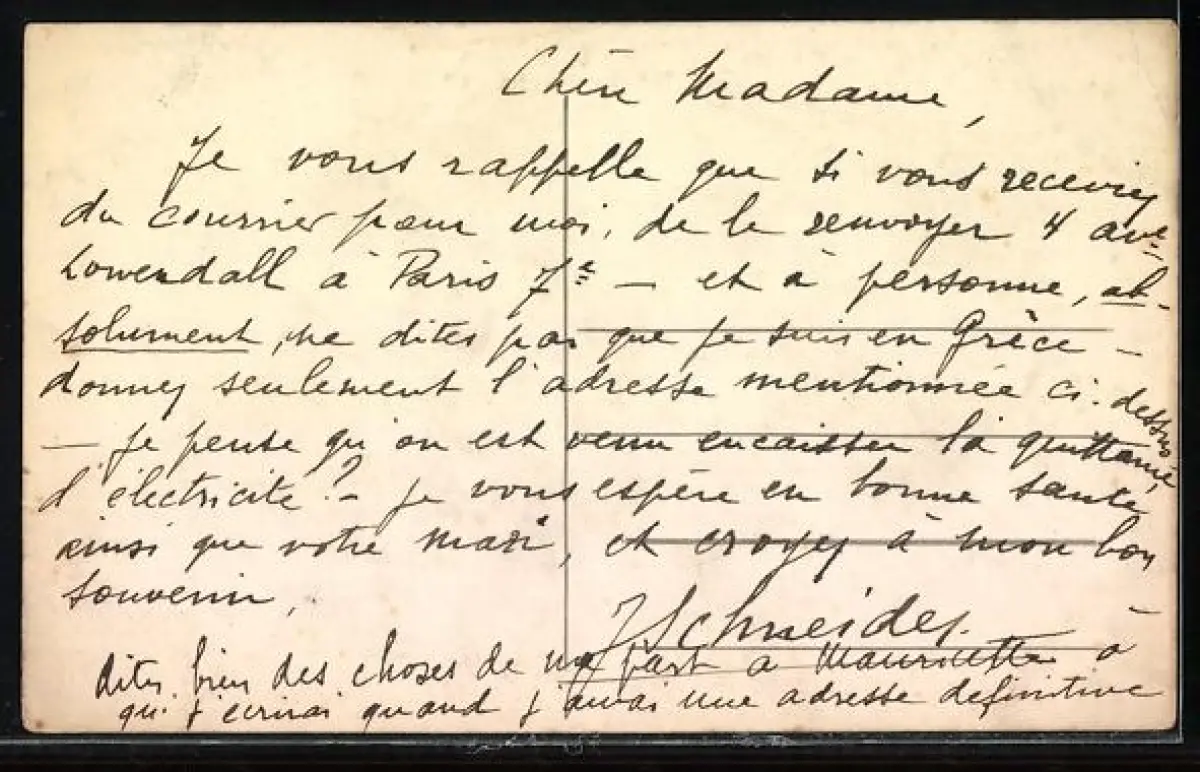 Chère Madame,
Je vous rappelle que si vous receviez
du courrier pour moi, de le renvoyer 4 ave
Lowendall à Paris 7e — et à personne, ab-
solument, ne dites pas que je suis en Grèce —
donnez seulement l'adresse mentionnée ci-dessus
— Je pense qu'on est venu encaisser la quittance
d'électricité ? — Je vous espère en bonne santé,
ainsi que votre mari, et croyez à mon bon
souvenir,
J Schneider.
dites bien des choses de ma part à Mauricette à
qui j'écrirai quand j'aurai une adresse définitive